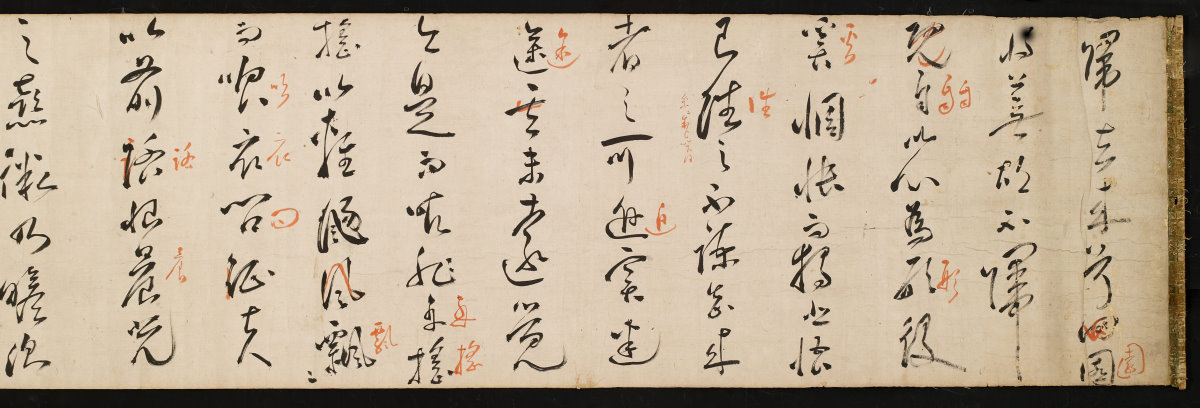 歸去来兮田園
園
将蕪胡不歸
既自以心為形役
形
奚惆悵而獨悲悟
奚
已往之不諫知来
往
者之可追實迷
途其未遠覺
途
今是而昨非舟搖
舟搖
搖以輕颺風飄〻
飄
而吹衣問征夫
吹衣問
以前路恨晨光
路晨
之熹微乃瞻衡